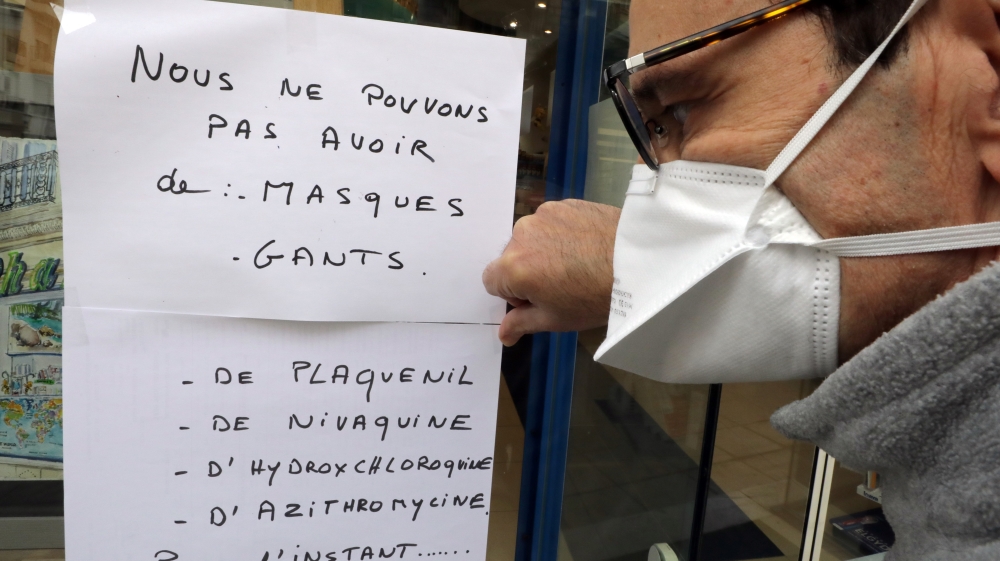 NOUS NE POUVONS
PAS AVOIR
de :- MASQUES
- GANTS.
- DE PLAQUENIL
- DE NIVAQUINE
- D'HYDROXCHLOROQUINE
- D'AZITHROMYCINE.
L'INSTANT.......